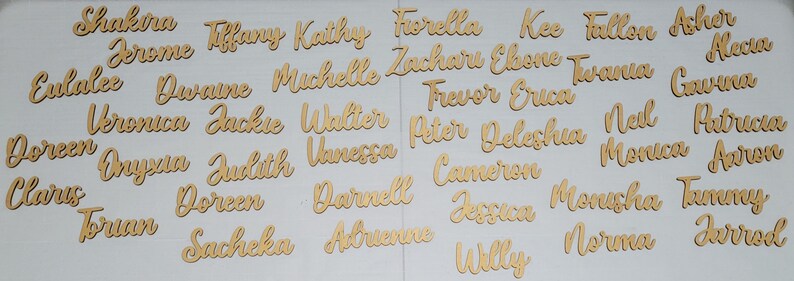 Shakira
Tiffany
Kathy
Fiorella
Kee
Fallon
Asher
Jerome
Zachari
Ebone
Alecia
Eulalee
Dwaine
Michelle
Twania
Gavina
Trevor
Erica
Veronica
Jackie
Walter
Peter
Deleshia
Neil
Patricia
Doreen
Onyxia
Judith
Vanessa
Cameron
Monica
Aaron
Claris
Doreen
Darnell
Jessica
Monisha
Tammy
Torian
Sacheka
Adrienne
Willy
Norma
Jarrod